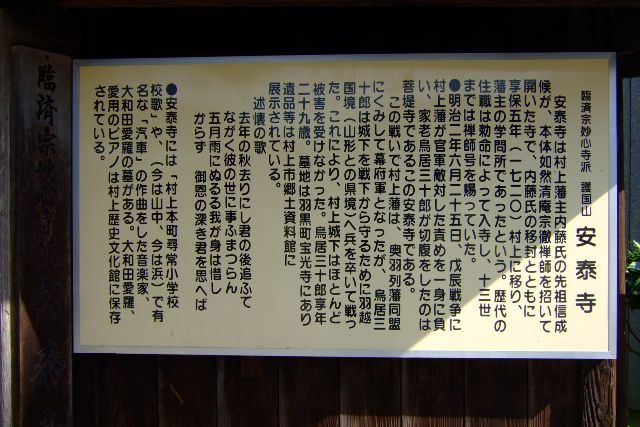 臨済宗妙心寺派 護国山 安泰寺
安泰寺は村上藩主内藤氏の先祖信成
候が、本体如然清庵宗徹禅師を招いて
開いた寺で、内藤氏の移封とともに
享保五年（一七二〇）村上に移り、
藩主の学問所であったという。歴代の
住職は勅命によって入寺し、十三世
までは禅師号を賜っていた。
●明治二年六月二十五日、戊辰戦争に
村上藩が官軍敵対した責めを一身に負
い、家老鳥居三十郎が切腹をしたのは
菩提寺であるこの安泰寺である。
この戦いで村上藩は、奥羽列藩同盟
にくみして幕府軍となったが、鳥居三
十郎は城下を戦下から守るために羽越
国境（山形との県境）へ兵を卒いて戦っ
た。これにより、村上城下はほとんど
被害を受けなかった。鳥居三十郎享年
二十九歳。墓地は羽黒町宝光寺にあり
遺品等は村上市郷土資料館に
展示されている。
述懐の歌
去年の秋去りにし君の後追ふて
ながく彼の世に事ふまつらん
五月雨にぬるる我が身は惜し
からず 御恩の深き君を思へば
●安泰寺には「村上本町尋常小学校
校歌」や、（今は山中、今は浜）で有
名な「汽車」の作曲をした音楽家、
大和田愛羅の墓がある。大和田愛羅、
愛用のピアノは村上歴史文化館に保存
されている。
臨済宗妙心寺
泰